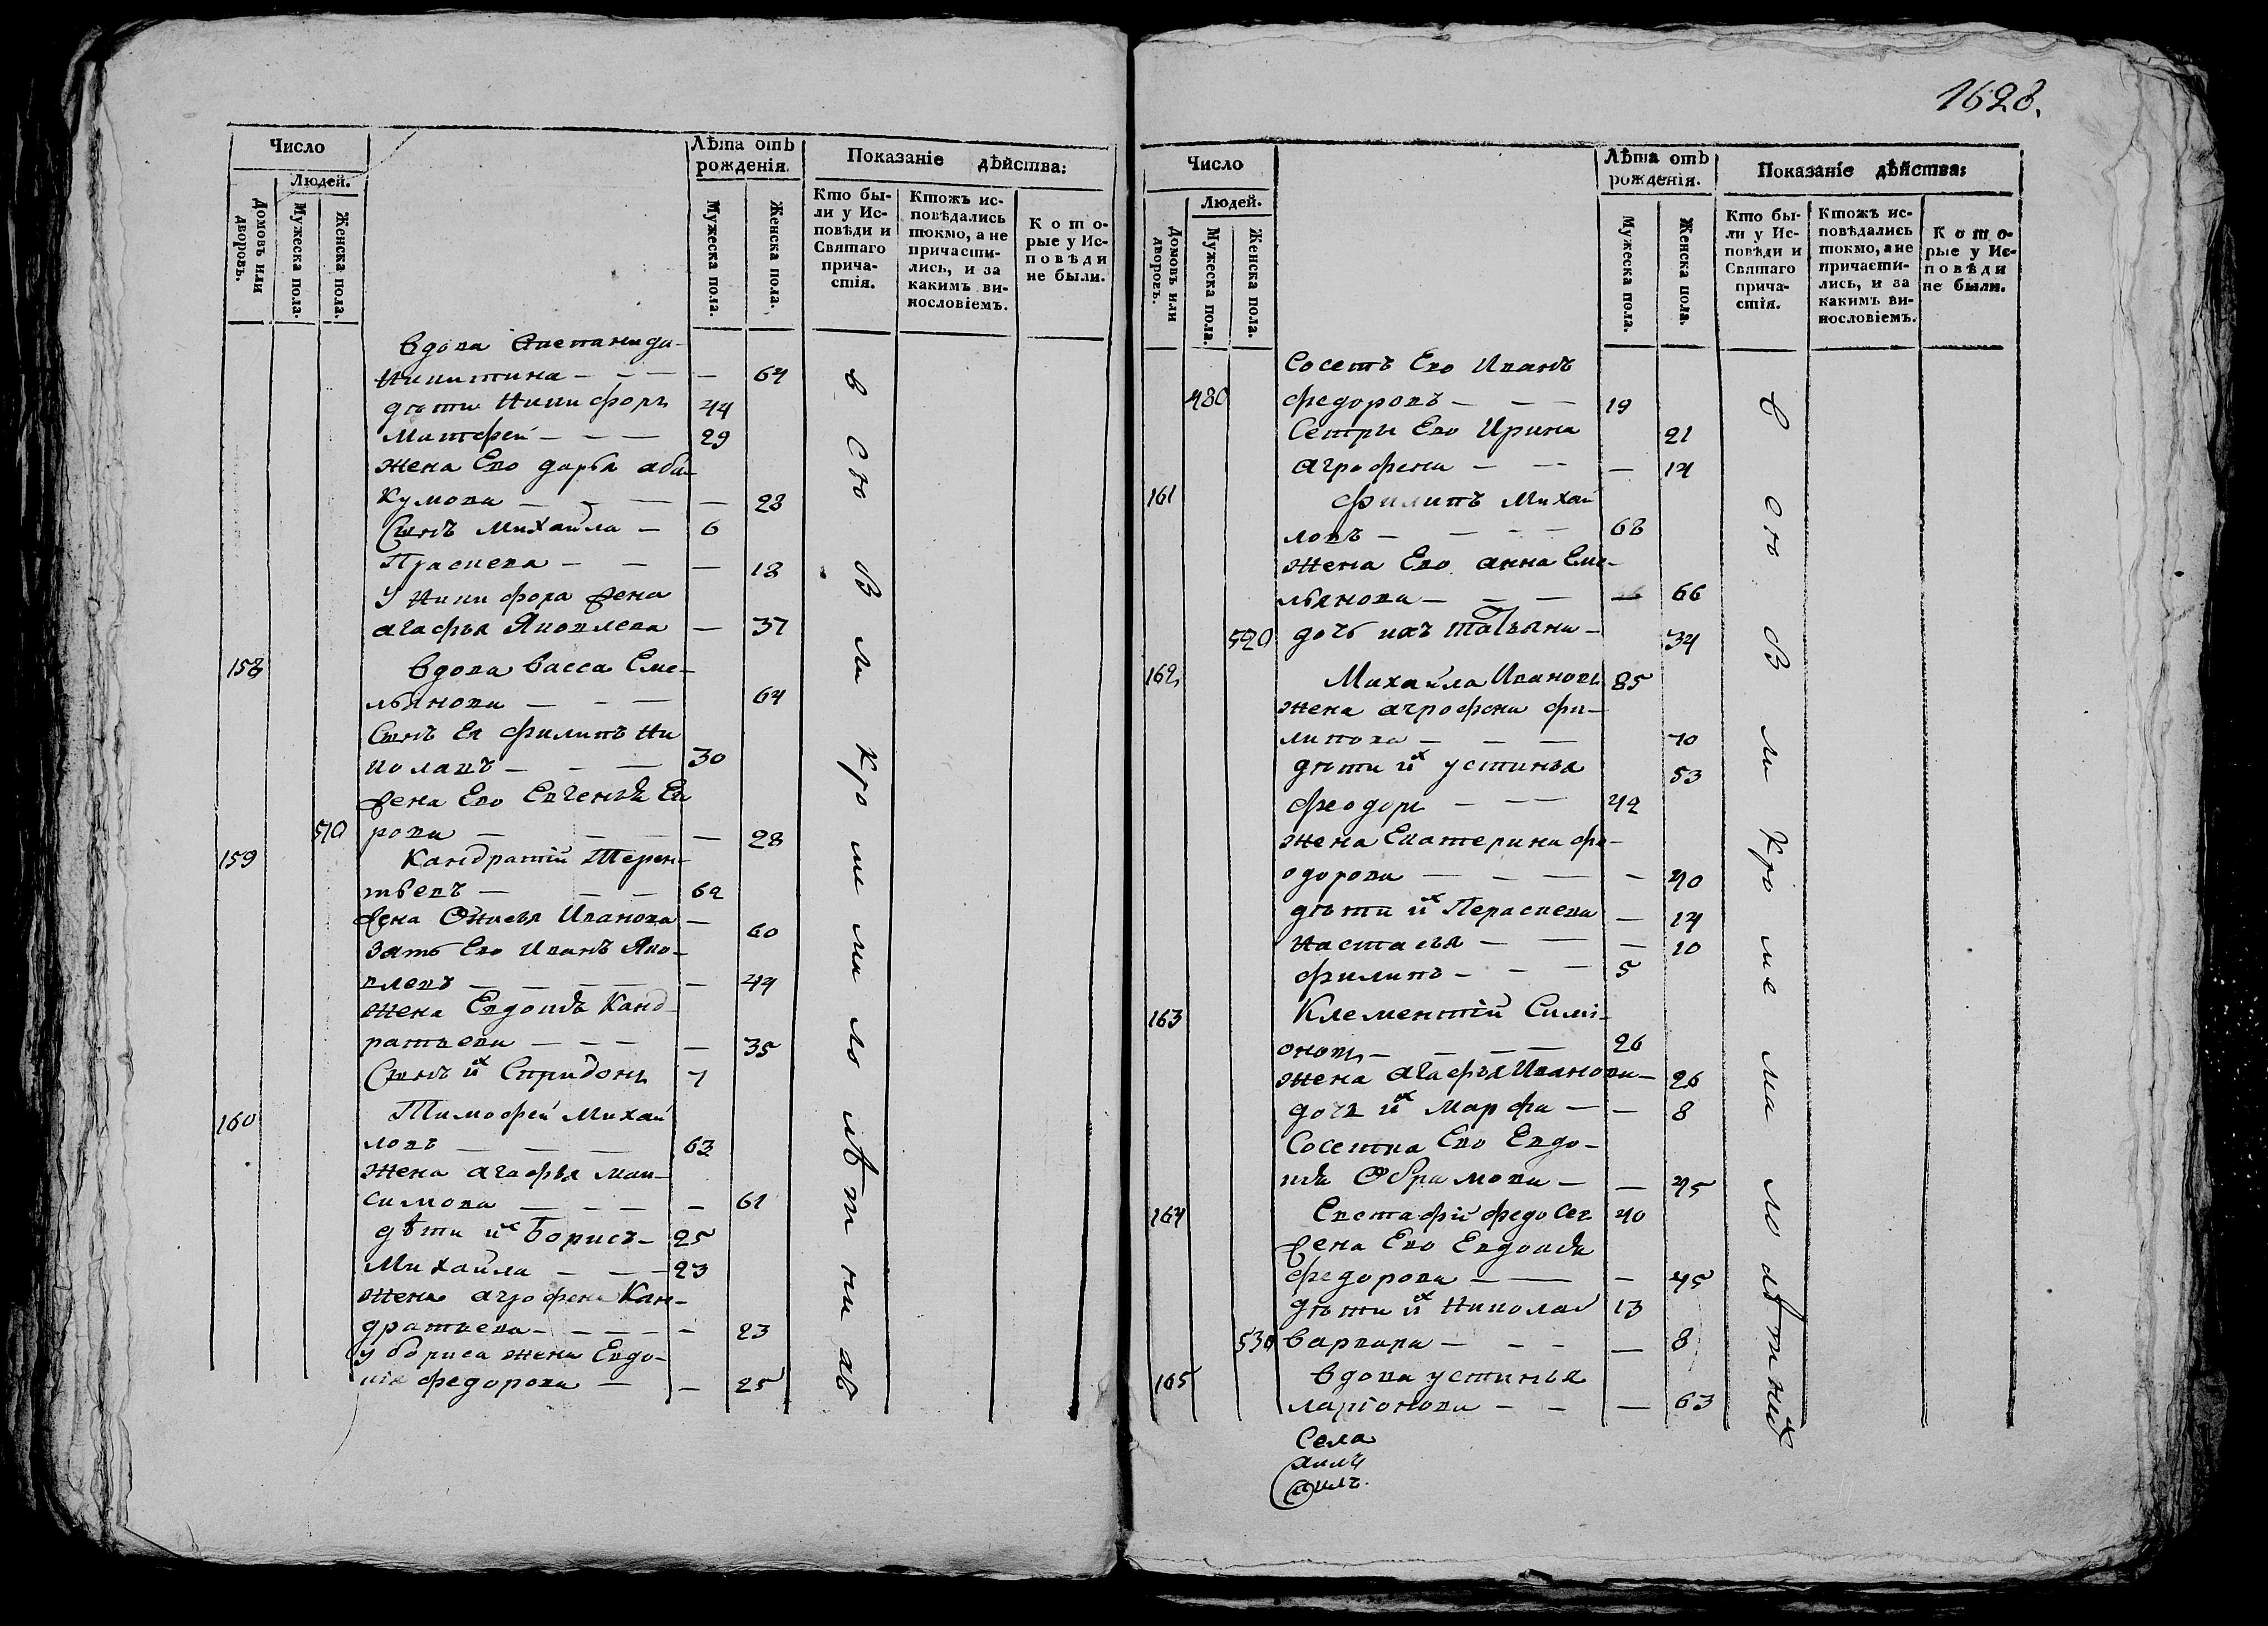 Число
Людей.
Домовъ или дворовъ.
Мужеска пола.
Женска пола.
Лѣта отъ рожденія.
Мужеска пола.
Женска пола.
Показаніе дѣйства:
Кто бы-
ли у Ис-
повѣди и
Святаго
прича-
стія.
Ктожъ ис-
повѣдались
токмо, а не
причасти-
лись, и за
какимъ ви-
нословіемъ.
Кото-
рые у Ис-
повѣди
не были.
вдова
Никитина - - - - 64
дѣти Никифоръ 44
Матфей - - - 29
жена Ево дарья аба-
Кумова - - - - 28
Сынъ Михайла - 6
Прасковя - - - 18
У Никифора жена
агафья Яковлева - 37
158 вдова васса Еме-
льянова - - - 64
Сынъ Ея филипъ Ни
колавъ - - - 30
жена Ево Евгенья Ев
510 рова - - - - 28
159 Кандратій Терен-
тьевъ - - - 62
жена Онисья Иванова - 60
Зять Ево Иванъ Яко-
влевъ - - - - 44
жена Евдокѣя Канд-
ратьева - - - - 35
Сынъ их Спридонъ 7
160 Тимофей Михай
ловъ - - - 63
жена агафья Мак-
симова - - - - 61
дѣти их Борисъ - 25
Михайла - - - 23
жена агрофена Кан-
дратьева - - - - - 23
у бориса жена Евдо-
кія федорова - - 25
в сю в ли Кро ме ма ло лѣт ни хъ
1628.
Число
Людей.
Домовъ или дворовъ.
Мужеска пола.
Женска пола.
Лѣта отъ рожденія.
Мужеска пола.
Женска пола.
Показаніе дѣйства:
Кто бы-
ли у Ис-
повѣди и
Святаго
прича-
стія.
Ктожъ ис-
повѣдались
токмо, а не
причасти-
лись, и за
какимъ ви-
нословіемъ.
Кото-
рые у Ис-
повѣди
не были.
Сосетъ Ево Иванъ
480 федоровъ - - - 19
Сетры Ево Ирина 21
агрофена - - - 14
161 филипъ Михай
ловъ - - - - 68
жена Ево анна Еме-
льянова - - - - 66
520 дочь ихъ Татьяна - 34
162 Михайла Ивановъ 85
жена агрофена фи-
липова - - - 70
дѣти их устинья 53
феодоръ - - - 42
жена Екатерина фе-
одорова - - - - 40
дѣти их Параскева - 14
Настасья - - - 10
филипъ - - - 5
163 Клементій Симі-
оновъ - - - - 26
жена агафья Иванова - 26
дочь их марфа - - 8
Сосетка Ево Евдо-
кѣя Обрамова - - 45
164 Евстафій федосев 40
жена Ево Евдокѣя
федорова - - - 45
дѣти их Николай 13
530 варвара - - - - 8
165 вдова устинья
ларіонова - - - 63
Села
в сю в ли Кро ме ма ло лѣт них